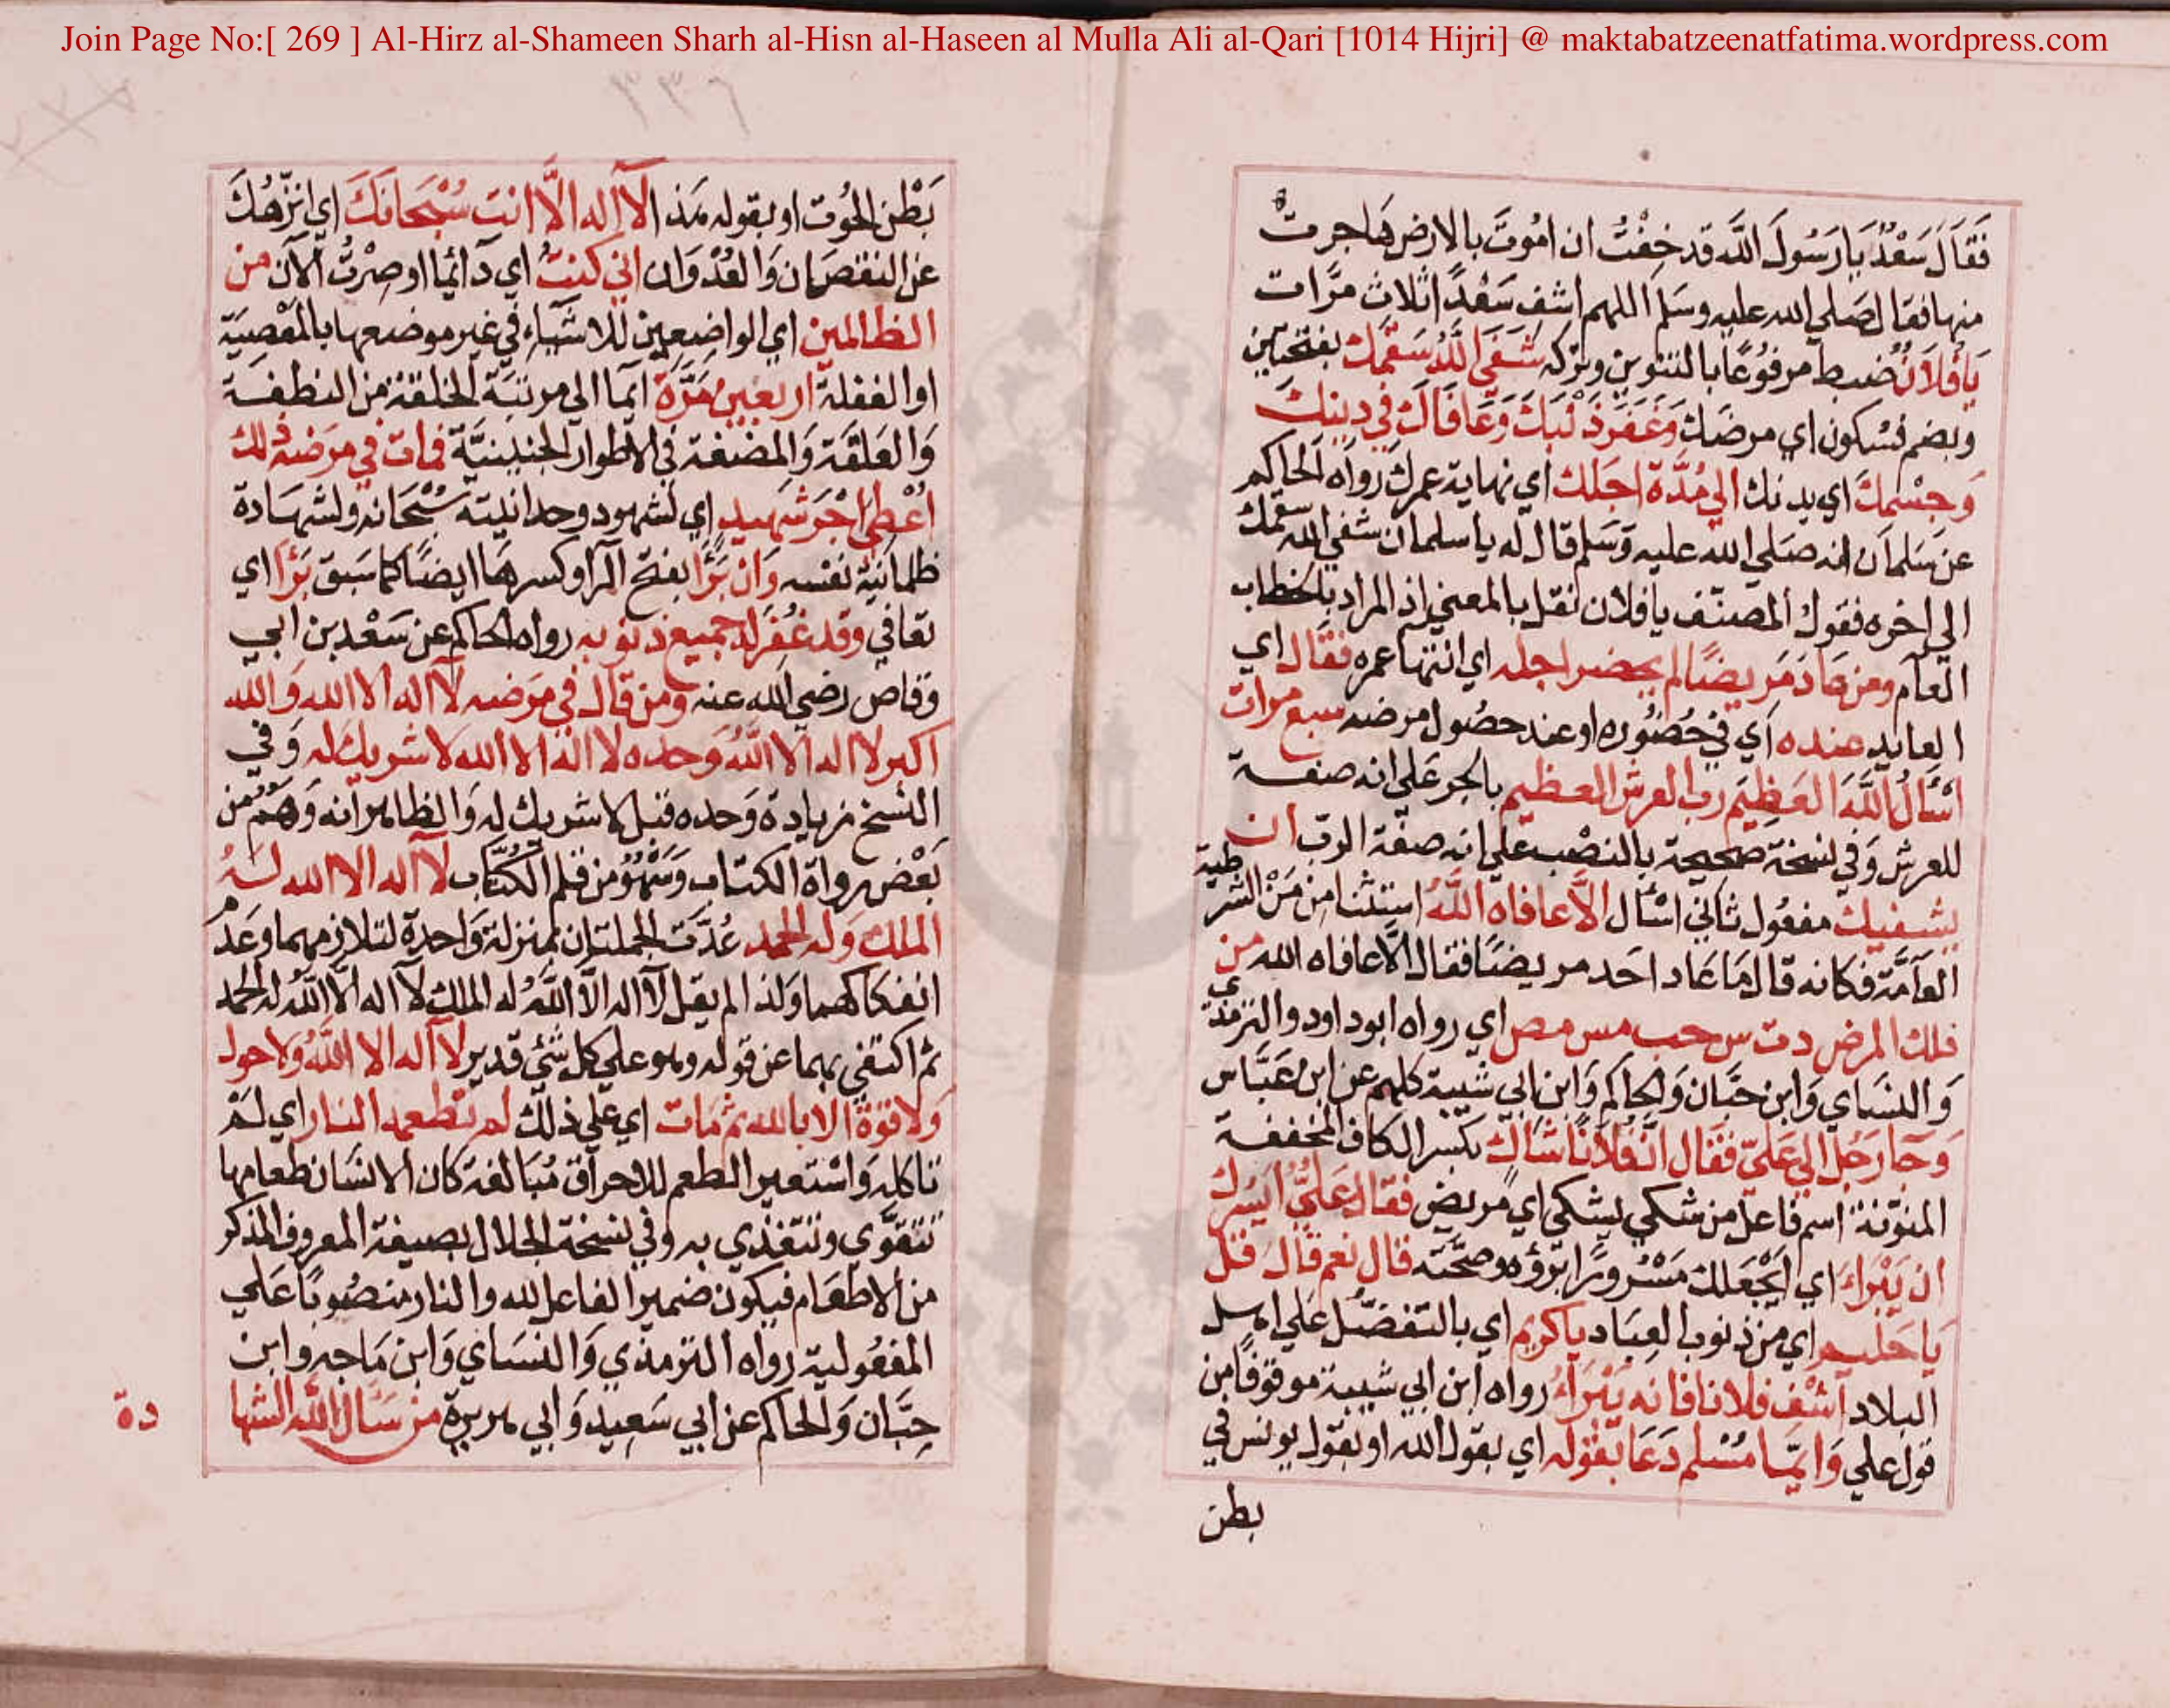 Join Page No:[ 269 ] Al-Hirz al-Shameen Sharh al-Hisn al-Haseen al Mulla Ali al-Qari [1014 Hijri] @ maktabatzeenatfatima.wordpress.com
فَقَالَ سَعْدٌ يَا رَسُولَ اللَّه قد خِفْتُ ان امُوتَ بالارض هَاجرت
منها فقال صَلي الله عليه وسَلم اللهم اشف سَعْدًا ثلاث مرَّات
يَا فُلاَنُ ضبط مرفوُعًا بالتنوين وتركه شَفَي اللَّهُ سَقَمَك بفتحتين
وبضم فسُكون اي مرضَك وَغَفَرَ ذَنْبَكَ وَعَافَاكَ في دينك
وَجِسْمِكَ اي بدنك الي مُدَّة اَجَلك اي نهاية عمرك رَوَاه الحاكم
عن سَلمان انه صَلي الله عليه وَسَلم قال له يا سلمان شفي الله سقمك
الي اخره فقول المصنّف يا فلان نقل بالمعني اذ المراد بالخطاب
العام ومن عَادَ مَريضًا لم يحضر اجله اي انتهاء عمره فقال اي
العايد عنده اي في حُضُوره او عند حصُول مرضه سبع مرات
اَسْأَلُ اللَّهَ العَظِيمَ رب العرش العظيم بالجر عَلي انه صفة
للعرش وَفي نسخة صحيحة بالنصْب علي انه صفة الرب ان
يشفيك مفعُول ثاني اسْأل الاَّ عافاه اللَّهُ استثنا من مَنْ الشرطية
العَامَّة فكانه قال مَا عَاد اَحد مريضًا فقال الاَّ عافاه الله من
ذلك المرض دت س حب مس مص اي رواه ابوداود والترمذي
وَالنسَاي وَابن حبَّان وَالحاكم وَابن ابي شيبة كلهم عن ابن عَبَّاس
وَجَا رَجُل الي عَليّ فقَال انَّ فُلاَنًا شَاك بكسر الكاف المخففة
المنوّنة اسم فاعل من شكي يشكي اي مريض فقال عَلِيٌّ ايَسُرك
ان يَبْرَاءَ اي ايَجْعَلك مَسْرورًا برؤه وصحّته قال نعم قال قل
يَا حَليم اي من ذنوب العِبَاد يا كريم اي بالتفضّل عَلي اهل
البلاد اشْفِ فلانا فانه يَبْرَاءُ رواه ابن ابي شيبة موقوفًا من
قول علي وَايّمَا مُسْلم دَعَا بقوله اي بقول الله او بقول يونس في
بطن
٣٣٦
بَطْن الحُوت او بقوله هَذ الآ اله الاَّ انت سُبْحَانَكَ اي انزّهُكَ
عن النقصَان وَالعُدْوَان اني كنتُ اي دَآئما او صِرْتُ الآن من
الظالمين اي الواضِعِين للاشيآء في غير موضعها بالمعْصِيَة
او الغفلة اربعين مَرَّة ايمآ الي مرتبَة الخلقة من النطفة
وَالعَلقَة وَالمضغة في الاطوار الجنينيَّة فمات في مَرَضه ذلك
اُعْطيَ اَجْرَ شهيد اي لشهود وحدانيته سُبْحَانه ولشهَادة
ظلمانيّة نفسه وَان بَرَأَ بفتح الرآ وكسرهَا ايضًا كما سَبق بَرَأَ اي
تعافي وقد غُفِرَ له جميع ذنوبه رواه الحاكم عن سَعْد بن ابي
وقاص رضي الله عنه ومن قال في مَرَضه لآ اله الا الله وَالله
اكبر لا اله الا اللَّهُ وَحده لا اله الا الله لا شريك له وَفي
النسَخ زيادة وَحده قبل لا شريك له وَالظاهر انه وَهَمٌ من
بَعْض رواة الكتاب وَسَهْوٌ من قلم الكُتَّاب لآ اله الا الله لَهُ
الملك وَله الحمد عُدَّت الجملتان بمنزلة وَاحدة لتلازمهما وعَدم
انفكاكهما وَلذا لم يقل لآ اله الاَّ اللَّهُ له الملك لآ اله الاَّ اللَّهُ له الحمد
ثم اكتفي بهما عن قوله وهو علي كل شئي قدير لآ اله الا اللَّهُ وَلا حول
وَلا قوة الا بالله ثم مَات اي عَلي ذلك لم تطعمه النار اي لَمْ
تاكله وَاستعير الطعم للاحرَاق مُبَالغة كان الانسَان طعامها
تتقوّي وتتغذي به وفي نسخة الجلال بصيغة المعروف المذكر
من الاطعَام فيكون ضمير الفاعل لله والنار منصُوبًا عَلي
المفعُولية رواه الترمذي وَالنسَاي وَابن مَاجه وابن
حِبَّان وَالحاكم عن ابي سَعِيد وَابي هريرة من سَأل اللَّه الشها
دة